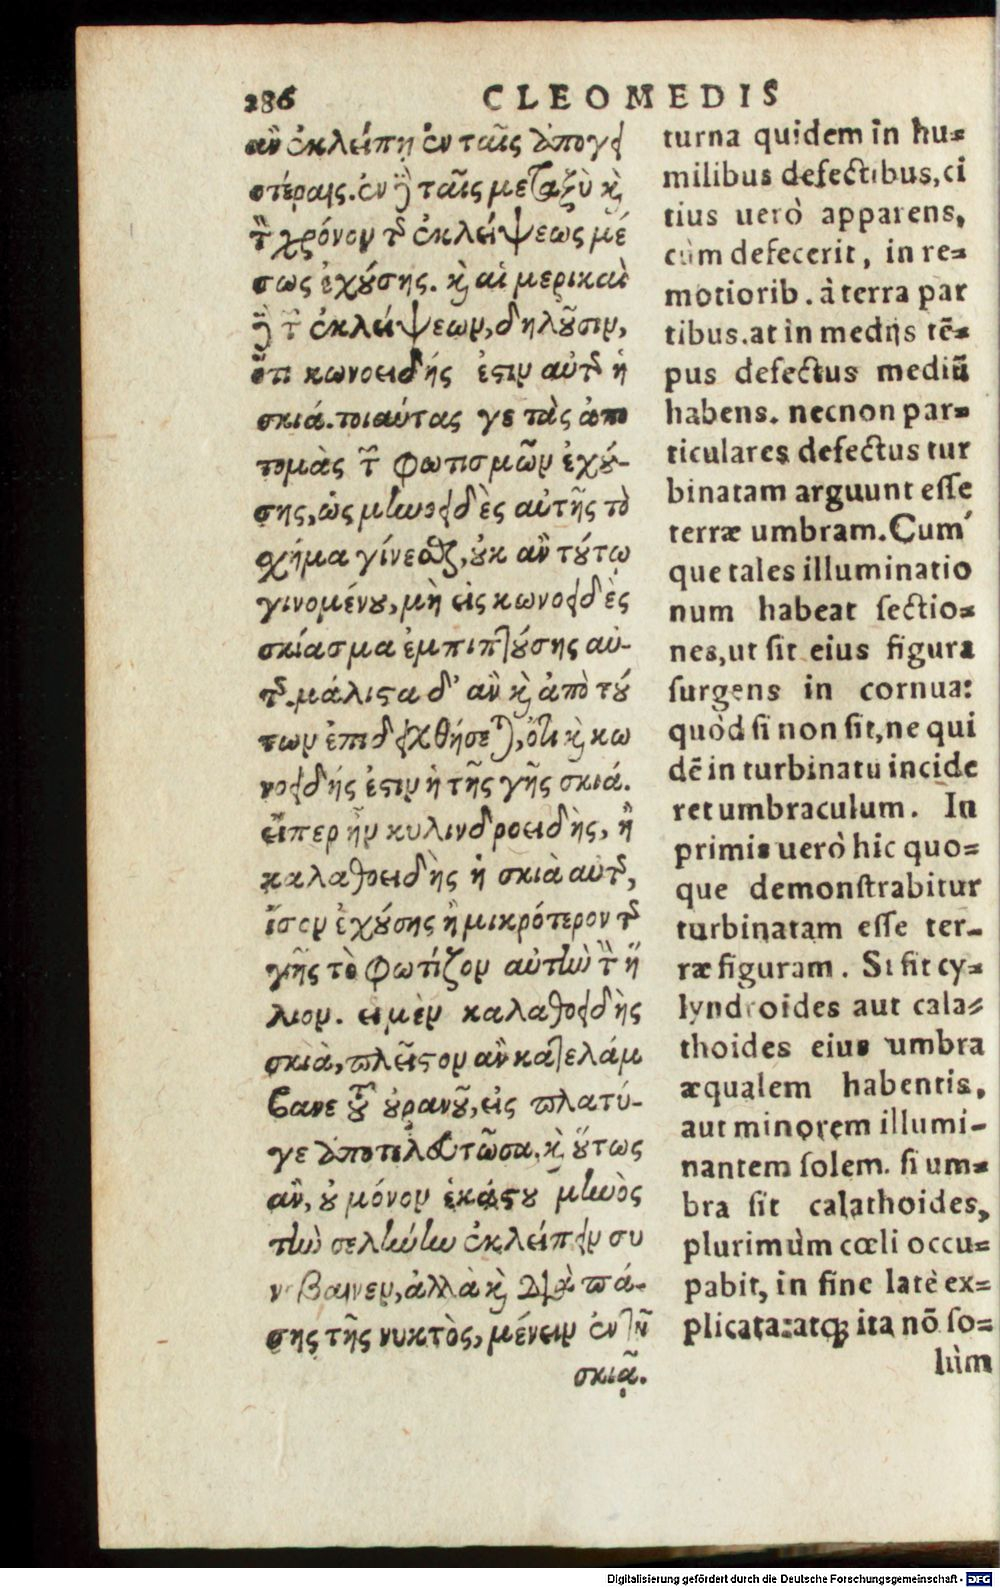 286 CLEOMEDIS
ἂν ἐκλείπῃ ἐν ταῖς ἀπογει
οτέραις. ἐν ἢ ταῖς μεταξὺ καὶ
τὸν χρόνον τῆς ἐκλείψεως μέ
σως ἐχούσης. καὶ αἱ μερικαὶ
δὲ τῶν ἐκλείψεων, δηλοῦσιν,
ὅτι κωνοειδής ἐστιν αὐτῆς ἡ
σκιά. τοιαύτας γε τὰς ἀπο
τομὰς τῶν φωτισμῶν ἐχού-
σης, ὡς μηνοειδὲς αὐτῆς τὸ
σχῆμα γίνεσθαι, οὐκ ἂν τούτῳ
γινομένου, μὴ εἰς κωνοειδὲς
σκίασμα ἐμπιπτούσης αὐ-
τῆς. μάλιστα δ' ἂν καὶ ἀπὸ τού
των ἐπιδειχθήσεται, ὅτι καὶ κω
νοειδής ἐστιν ἡ τῆς γῆς σκιά.
εἴπερ ἦν κυλινδροειδὴς, ἢ
καλαθοειδὴς ἡ σκιὰ αὐτῆς,
ἴσον ἐχούσης ἢ μικρότερον τῆς
γῆς τὸ φωτίζον αὐτὴν τὸν ἥ
λιον. εἰ μὲν καλαθοειδὴς
σκιὰ, πλεῖστον ἂν κατελάμ
βανε τοῦ οὐρανοῦ, εἰς πλατύ-
γε ἀποτελευτῶσα. καὶ οὕτως
ἂν, οὐ μόνον ἑκάστου μηνὸς
τὴν σελήνην ἐκλείπειν συ
νέβαινεν, ἀλλὰ καὶ διὰ πά-
σης τῆς νυκτὸς, μένειν ἐν τῇ
σκιᾷ.
turna quidem in hu=
milibus defectibus, ci
tius uerò apparens,
cùm defecerit, in re=
motiorib. à terra par
tibus. at in medijs tē=
pus defectus mediū
habens. necnon par=
ticulares defectus tur
binatam arguunt esse
terræ umbram. Cum´
que tales illuminatio
num habeat sectio=
nes, ut sit eius figura
surgens in cornua:
quòd si non sit, ne qui
dē in turbinatū incide
ret umbraculum. In
primis uerò hic quo=
que demonstrabitur
turbinatam esse ter-
ræ figuram. Si sit cy=
lyndroides aut cala=
thoides eius umbra
æqualem habentis,
aut minorem illumi-
nantem solem. si um=
bra sit calathoides,
plurimùm cœli occu=
pabit, in fine latè ex=
plicata: atq; ita nō so=
lùm
Digitalisierung gefördert durch die Deutsche Forschungsgemeinschaft - DFG